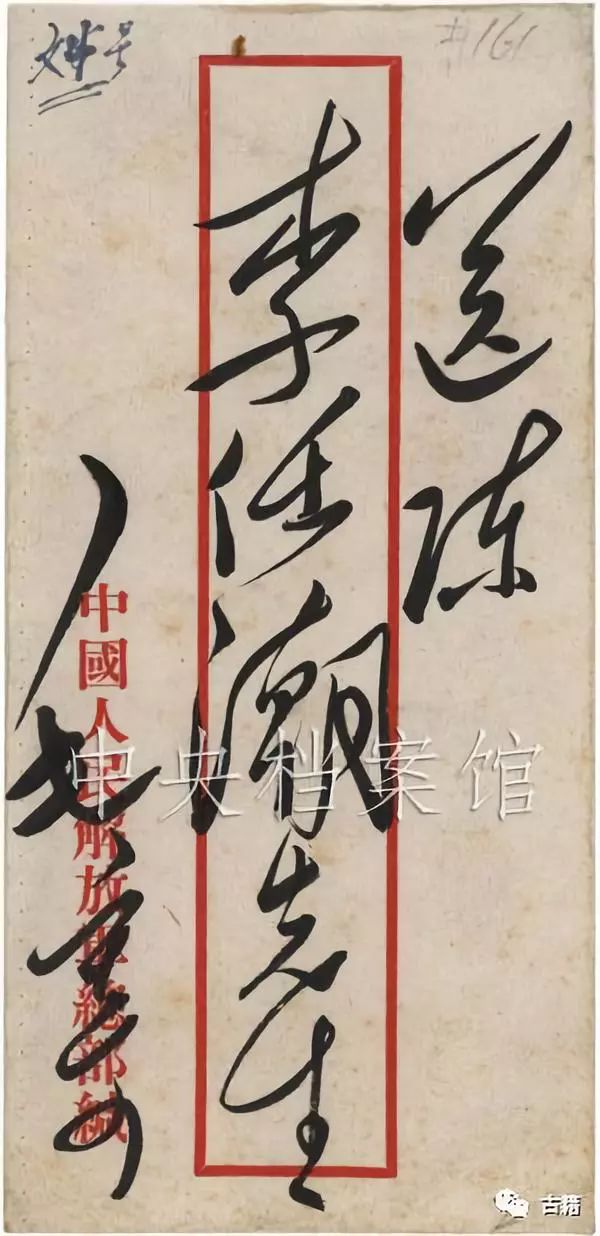 #161
送陈
李任潮先生
中國人民解放軍總部緘
中央档案馆
古籍